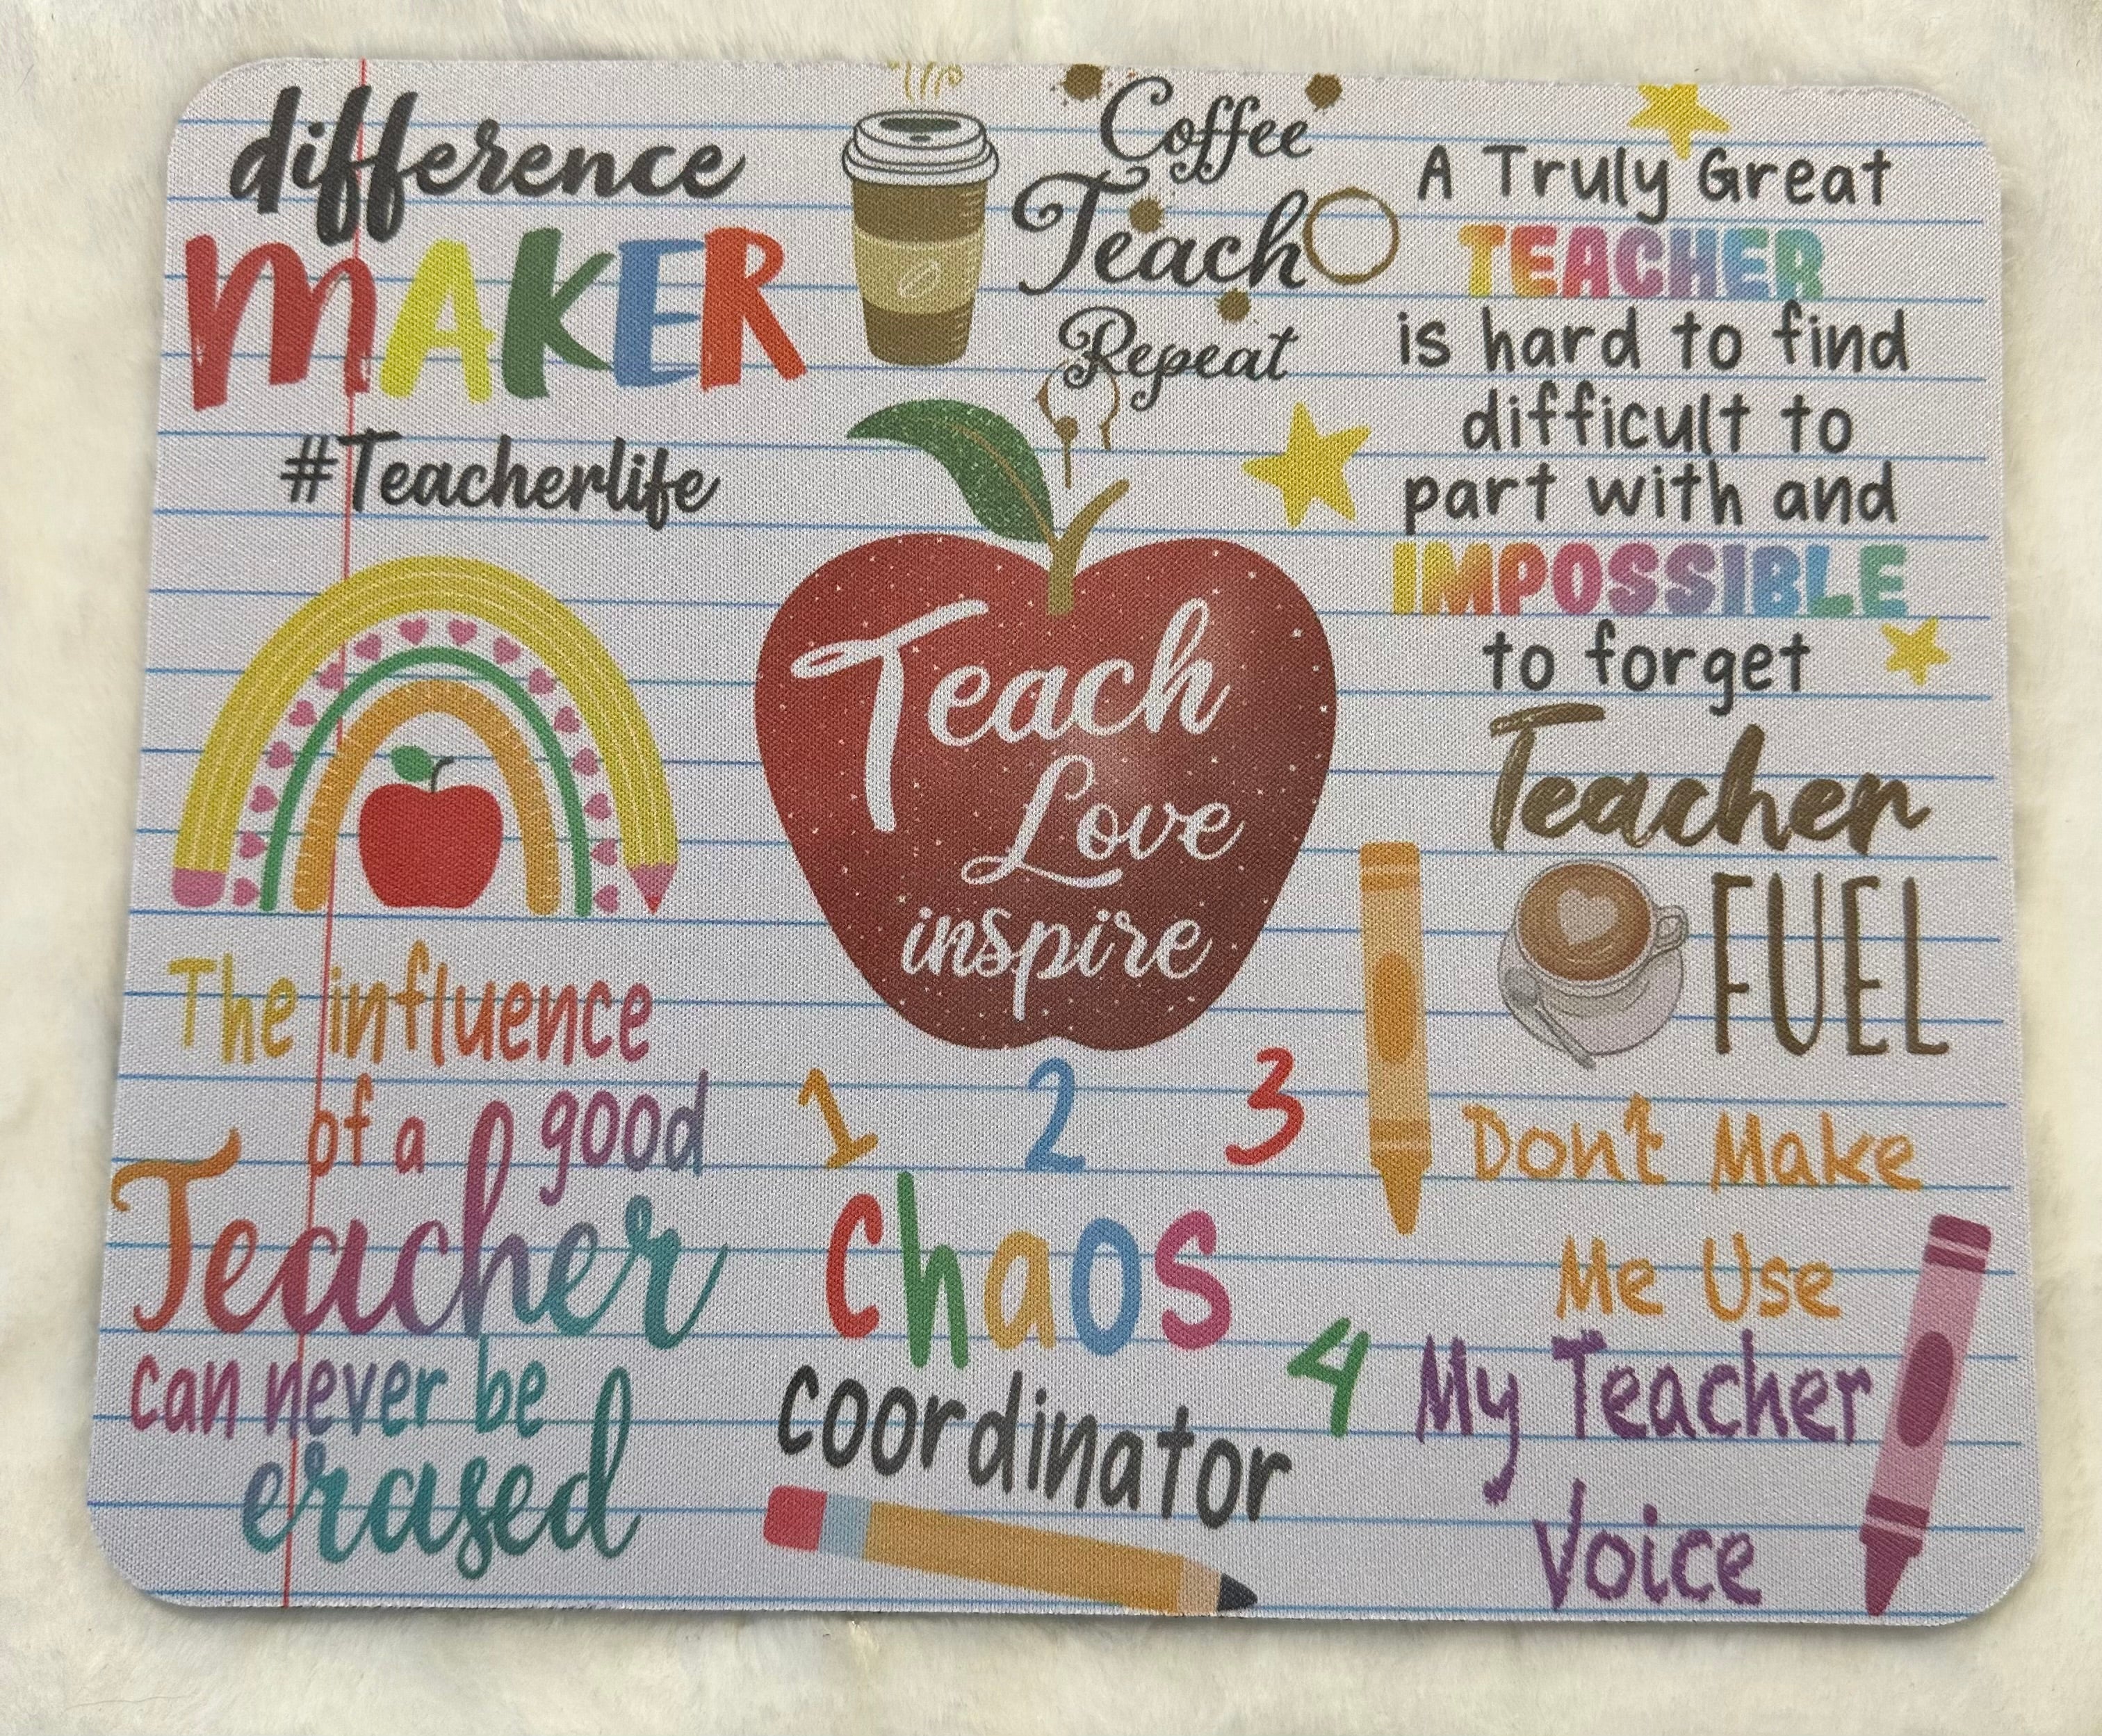 difference
MAKER
#Teacherlife
Coffee
Teach
Repeat
A Truly Great
TEACHER
is hard to find
difficult to
part with and
IMPOSSIBLE
to forget
Teach
Love
inspire
Teacher
FUEL
The influence
of a good
Teacher
can never be
erased
1 2 3
4
Chaos
coordinator
Don't Make
Me Use
My Teacher
Voice